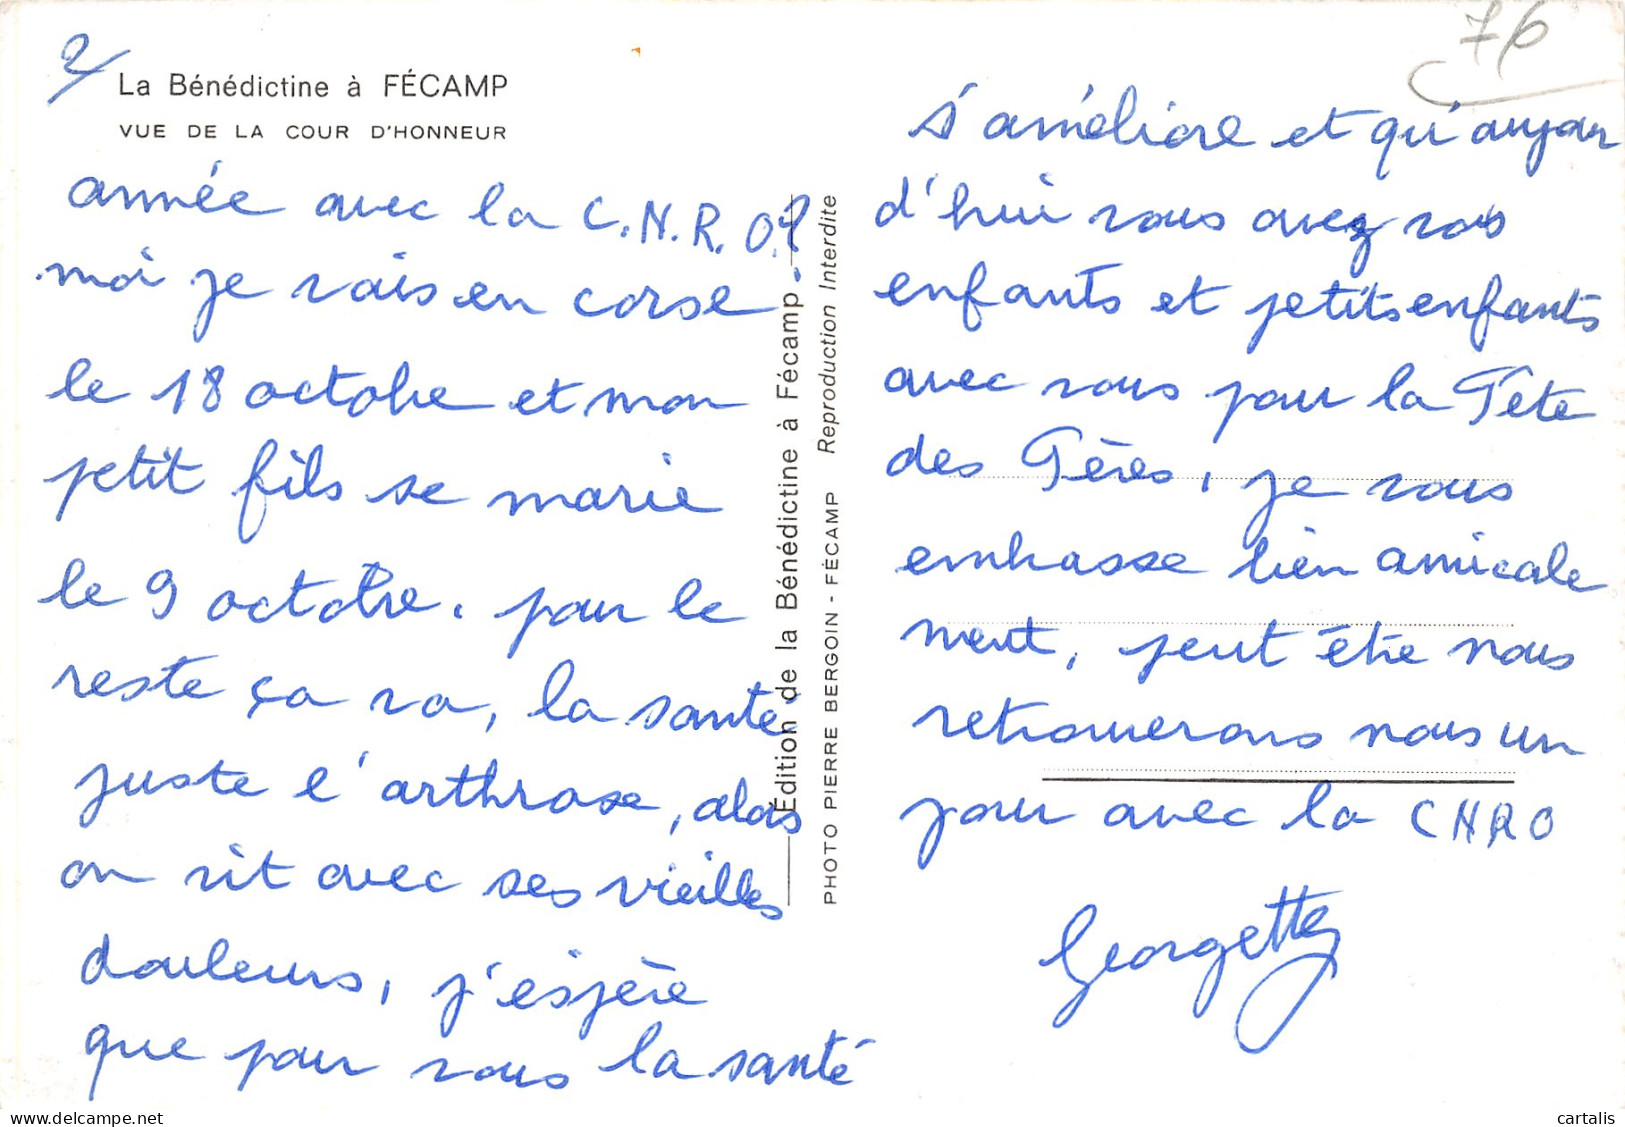 2/
La Bénédictine à FÉCAMP
VUE DE LA COUR D'HONNEUR
année avec la C.N.R.O.?
moi je vais en corse.
le 18 octobre et mon
petit fils se marie
le 9 octobre. pour le
reste ça va, la santé
juste l'arthrose, alors
on vit avec ses vieilles
douleurs, j'espère
que pour vous la santé
Édition de la Bénédictine à Fécamp
Reproduction Interdite
PHOTO PIERRE BERGOIN - FÉCAMP
76
s'améliore et qu'aujour
d'hui vous avez vos
enfants et petits enfants
avec vous pour la Fête
des Pères, je vous
embrasse bien amicale
ment, peut être nous
retrouverons nous un
jour avec la CNRO
Georgette
delcampe.net
cartalis